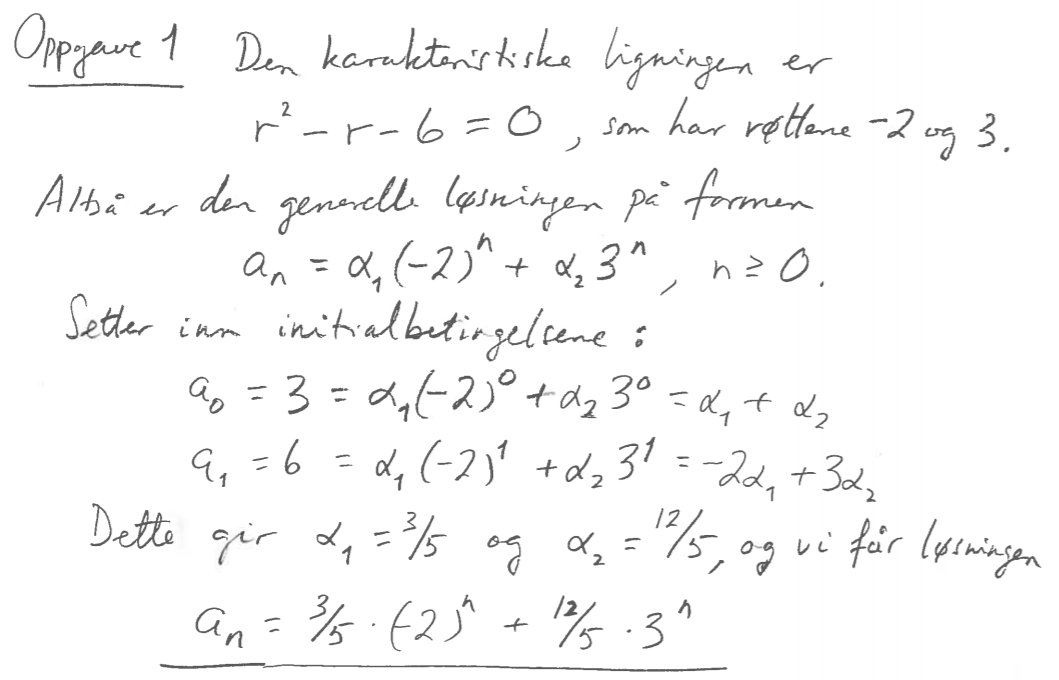 Oppgave 1 Den karakteristiske ligningen er
r² - r - 6 = 0, som har røttene -2 og 3.
Altså er den generelle løsningen på formen
aₙ = α₁(-2)ⁿ + α₂ 3ⁿ, n ≥ 0.
Setter inn initialbetingelsene:
a₀ = 3 = α₁(-2)⁰ + α₂ 3⁰ = α₁ + α₂
a₁ = 6 = α₁(-2)¹ + α₂ 3¹ = -2α₁ + 3α₂
Dette gir α₁ = 3/5 og α₂ = 12/5, og vi får løsningen
aₙ = 3/5 · (-2)ⁿ + 12/5 · 3ⁿ